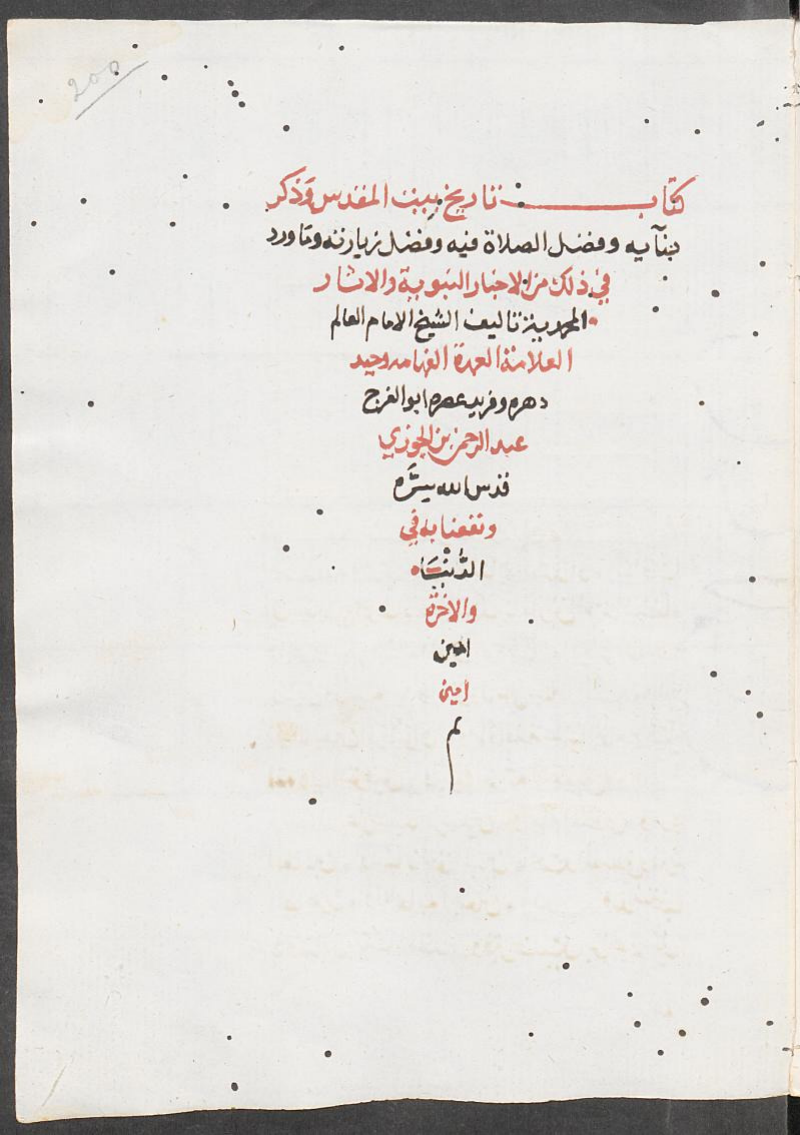 200
كتاب تاريخ بيت المقدس وذكر
بنآيه وفضل الصلاة فيه وفضل زيارته وما ورد
في ذلك من الاخبار النبوية والاثار
المحمدية تاليف الشيخ الامام العالم
العلامة العمدة الفهامه وحيد
دهره وفريد عصره ابو الفرج
عبد الرحمن بن الجوزي
قدس الله سره
ونفعنا به في
الدنيا
والاخرة
امين
امين
م